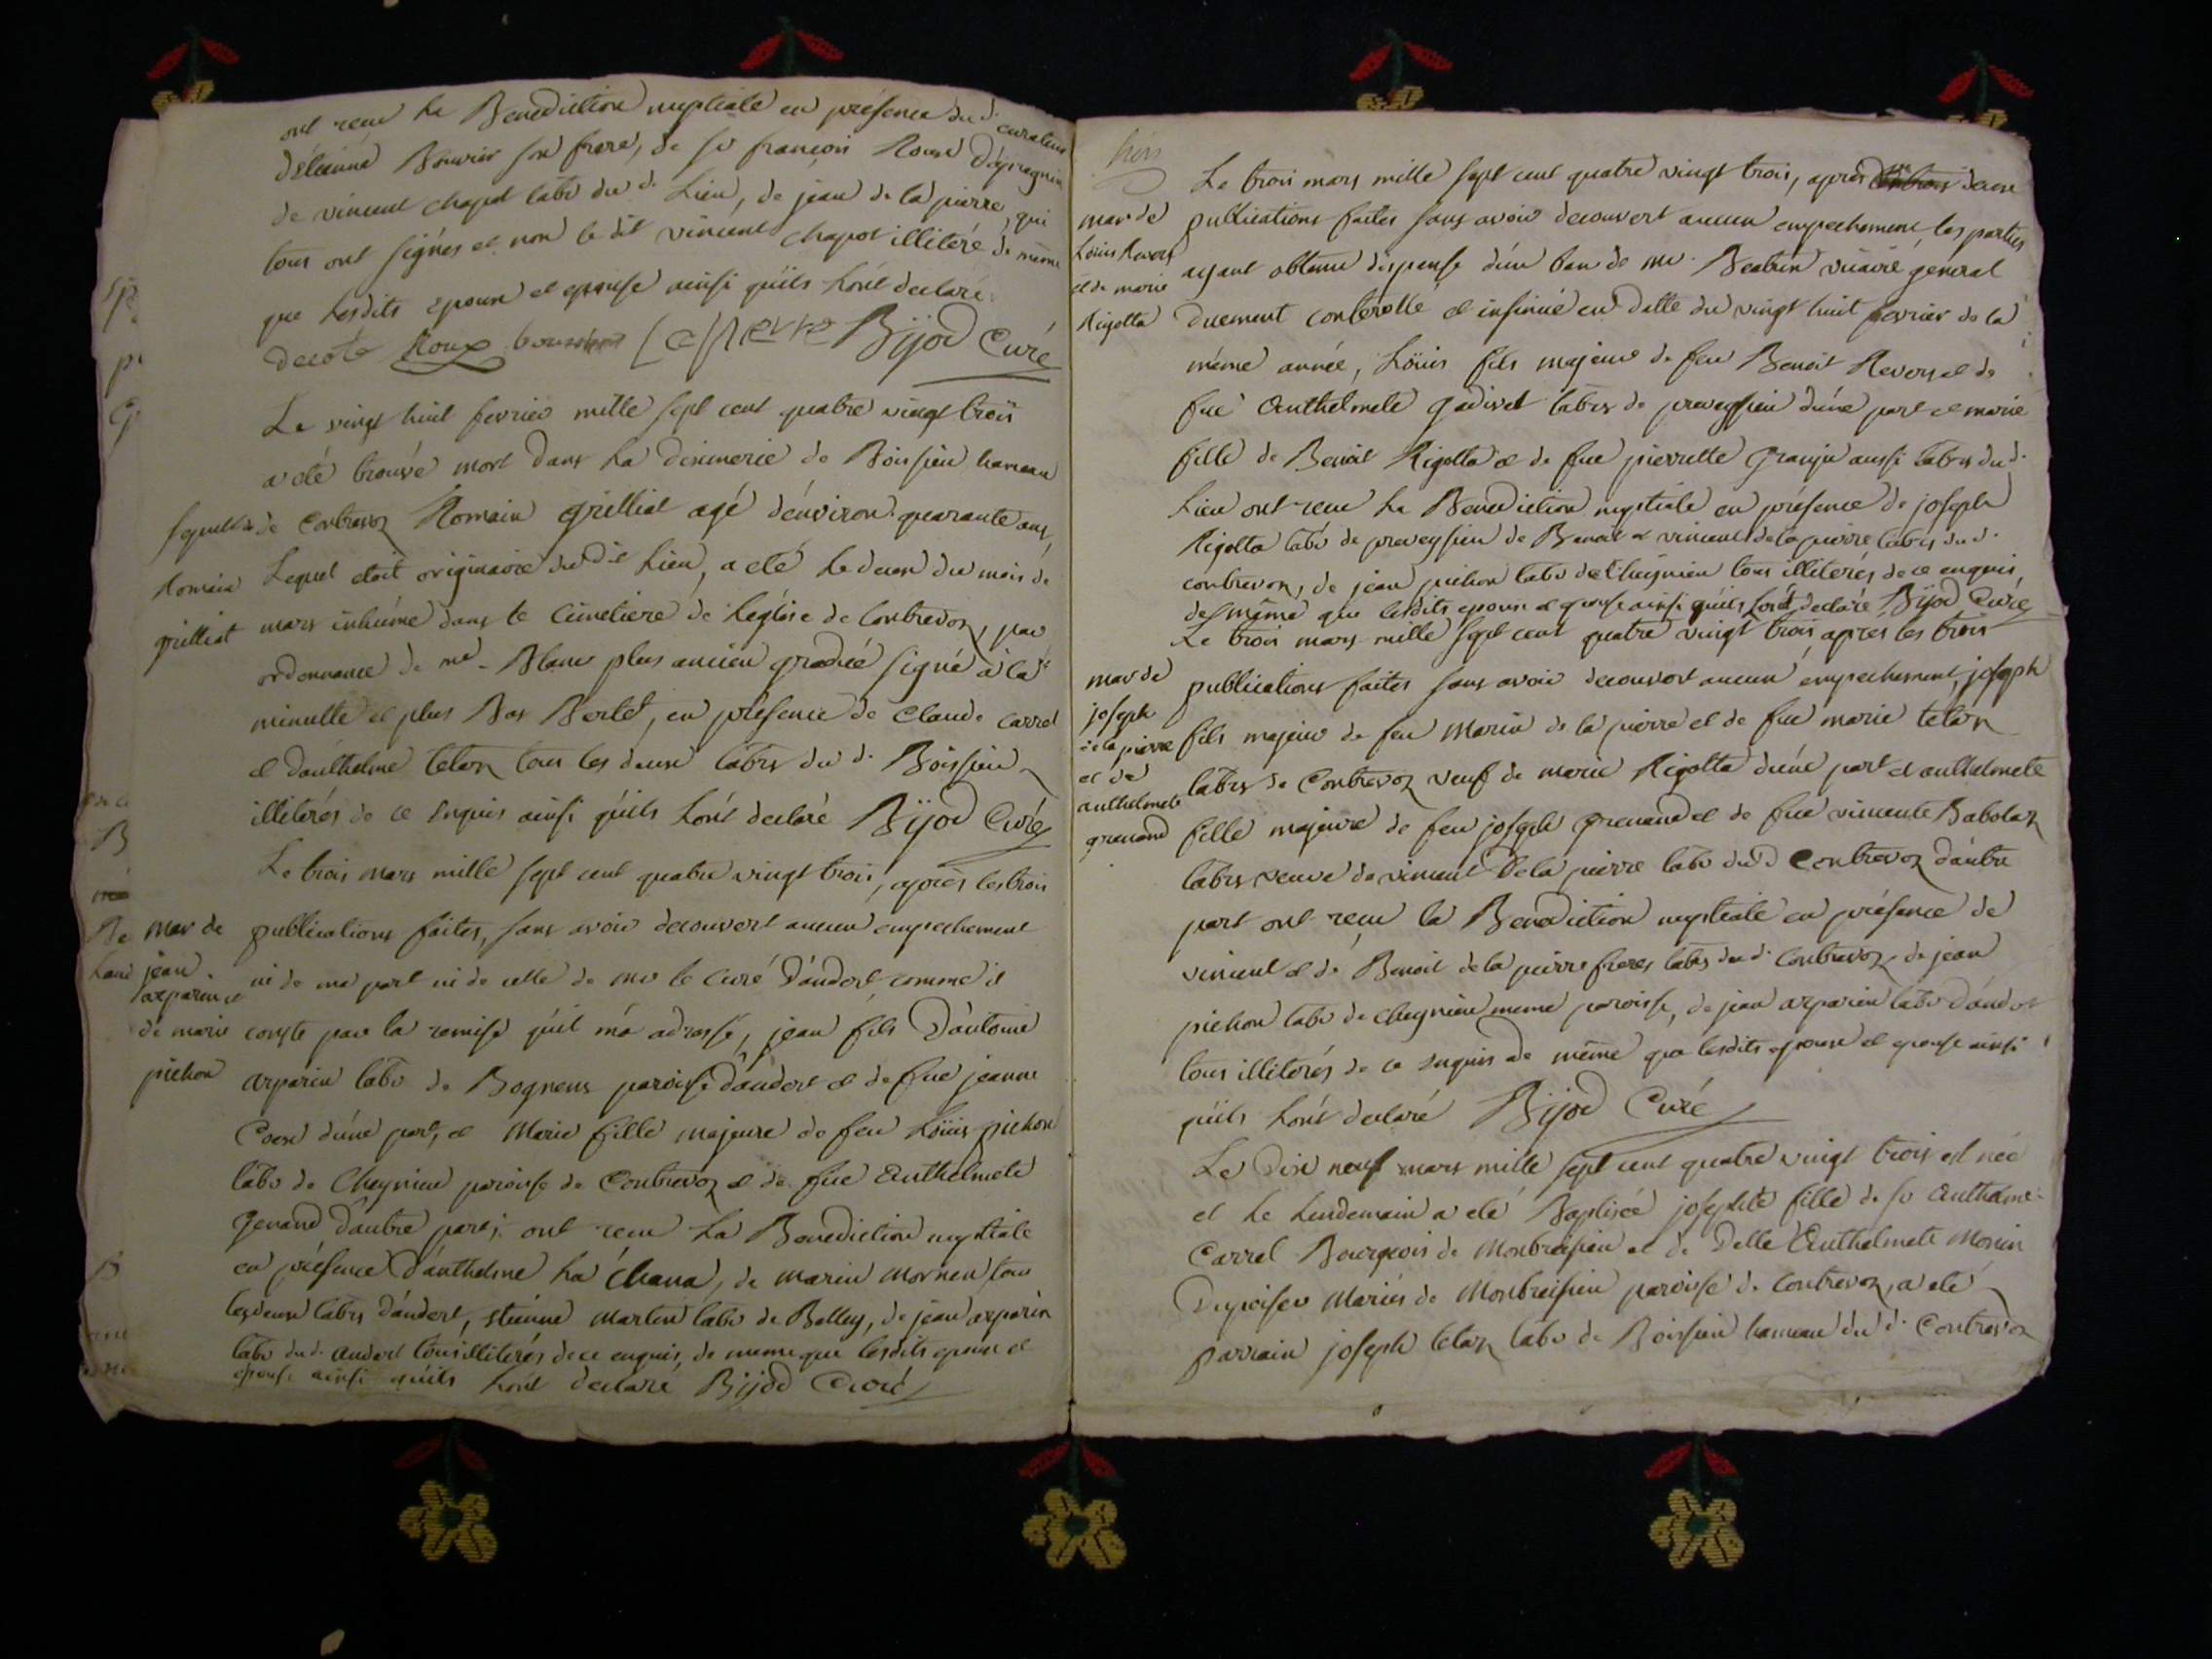 ont recu la Benediction nuptiale en présence du d. curateur
d'étienne Bouvier son frere, de sr francois Roux d'épregnin
de vincent chapot labr du d. Lieu, de jean de la pierre, qui
tous ont signés et non le dit vincent chapot illiteré de même
que lesdits epoux et epouse ainsi qu'ils l'ont declaré
decote Roux Bijod Curé
Le vingt huit fevrier mille sept cent quatre vingt trois
a été trouvé mort dans la dixmerie de Boissieu hameau
sepulture de Contrevoz Romain grilliat agé d'environ quarante ans,
Romain Lequel etoit originaire du dit Lieu, a eté le deux du mois de
grilliat mars inhumé dans le Cimetiere de l'eglise de Contrevoz, par
ordonnance de me Blanc plus ancien gradué signé à la
minutte et plus Bas Bertet, en présence de Claude Carrel
et d'anthelme tetaz tous les deux labrs du d. Boissieu
illiterés de ce enquis ainsi qu'ils l'ont declaré Bijod Curé
Le trois mars mille sept cent quatre vingt trois, après les trois
mar de publications faites, sans avoir decouvert aucun empechement
jean ni de ma part ni de celle de mr le Curé D'andert comme il
arparin et
de marie conste par la remise qu'il m'a adressé, jean fils D'antoine
pichon arparin labr de Bognens paroisse d'andert et de fue jeanne
Coux d'une part, et Marie fille majeure de feu Loüis pichon
labr de Cheynieu paroisse de Contrevoz et de fue Anthelmete
Genand d'autre part; ont recu La Benediction nuptiale
en présence D'anthelme La Chana, de marin mornen tous
les deux labrs d'andert, etienne martin labr de Belley, de jean arparin
labr du d. andert tous illiterés de ce enquis, de meme que lesdits epoux et
epouse ainsi qu'ils l'ont declaré Bijod Curé
Le trois mars mille sept cent quatre vingt trois, après deux
mar de publications faites sans avoir decouvert aucun empechement, les parties
Loüis Revers ayant obtenu dispense d'un ban de mr. Beatrix vicaire général
et de marie
Rigotta duement controllé et insinué en datte du vingt huit fevrier de la
même année, Loüis fils majeur de feu Benoit Revers et de
fue Anthelmete Gadivet labrs de preveyssieu d'une part et marie
fille de Benoit Rigotta et de fue pierrette Granju aussi labrs du d.
Lieu ont recu La Benediction nuptiale en présence de joseph
Rigotta labr de preveyssieu de Benoit et vincent de la pierre labrs du d.
contrevoz, de jean pichon labr de Cheynieu tous illiterés de ce enquis
de même que lesdits epoux et epouse ainsi qu'ils l'ont declaré Bijod Curé
Le trois mars mille sept cent quatre vingt trois, après les trois
mar de publications faites sans avoir decouvert aucun empechement, joseph
joseph
de la pierre fils majeur de feu Marin de la pierre et de fue marie tetaz
et de labrs de Contrevoz veuf de marie Rigotta d'une part et anthelmete
anthelmete
grenand fille majeure de feu joseph grenand et de fue vincente Babolaz
labrs veuve de vincent De la pierre labr du d Contrevoz d'autre
part ont recu la Benediction nuptiale en présence de
vincent et de Benoit de la pierre freres labrs du d. Contrevoz, de jean
pichon labr de Cheynieu meme paroisse, de jean arparin labr d'andert
tous illiterés de ce enquis et de même que lesdits epoux et epouse ainsi
qu'ils l'ont declaré Bijod Curé
Le Dix neuf mars mille sept cent quatre vingt trois est née
et le lendemain a eté Baptisée josephte fille de sr Anthelme
Carrel Bourgeois de Montbreissieu et de Delle Anthelmete Monin
Dupoiser Mariés de Montbreissieu paroisse de Contrevoz, a eté
parrain joseph tetaz labr de Boissieu hameau du d. Contrevoz